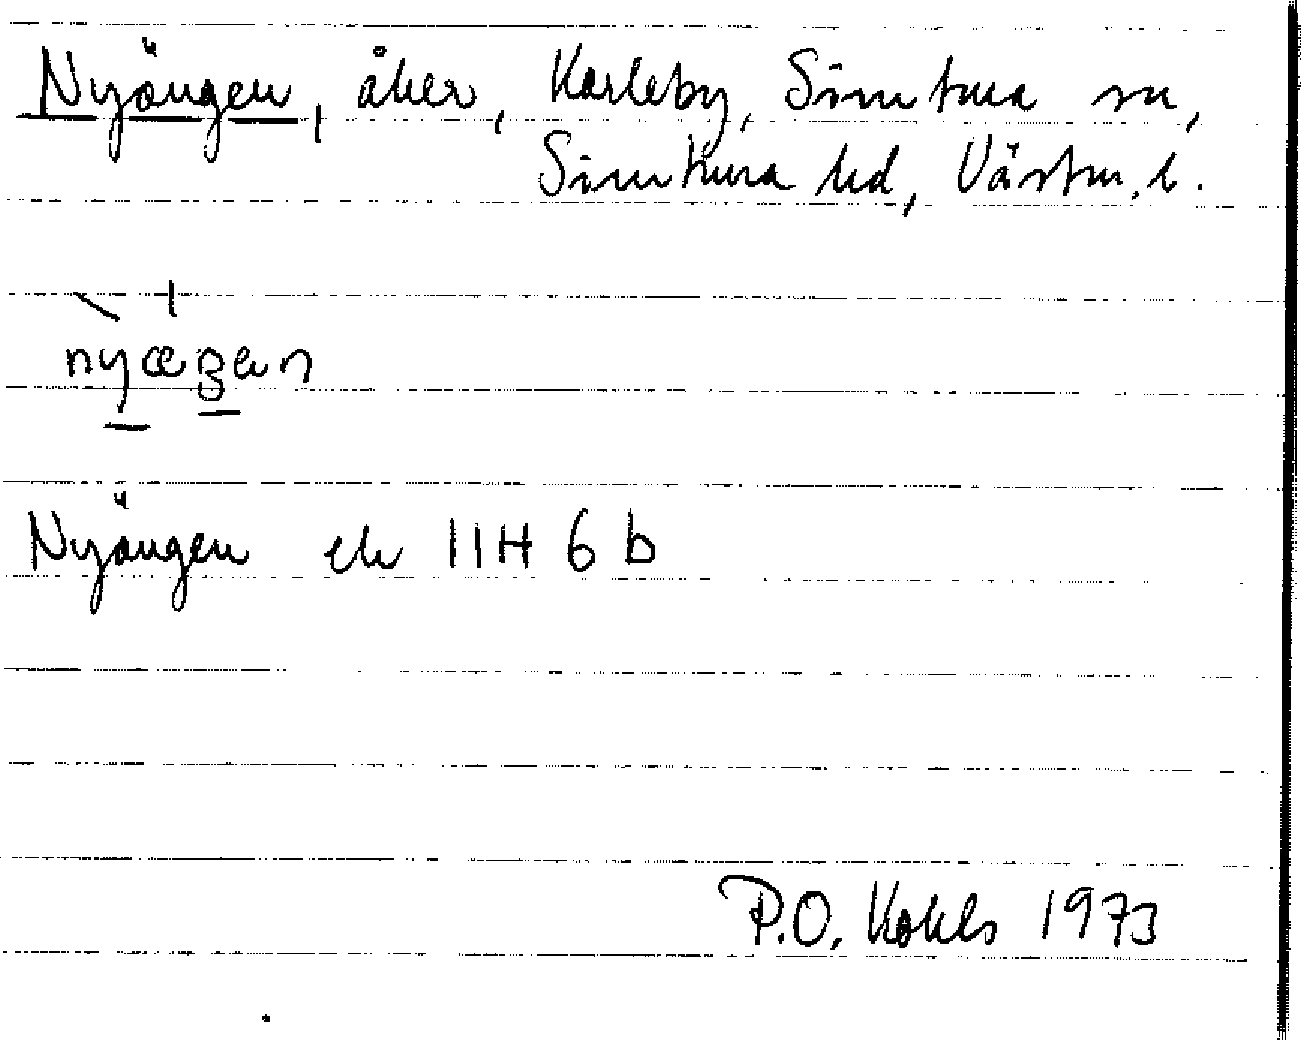 Nyängen, åker, Karleby, Simtuna sn,
Simtuna hd, Västm. l.
nyægen
Nyängen ek 11H 6 b
P.O. Kohls 1973